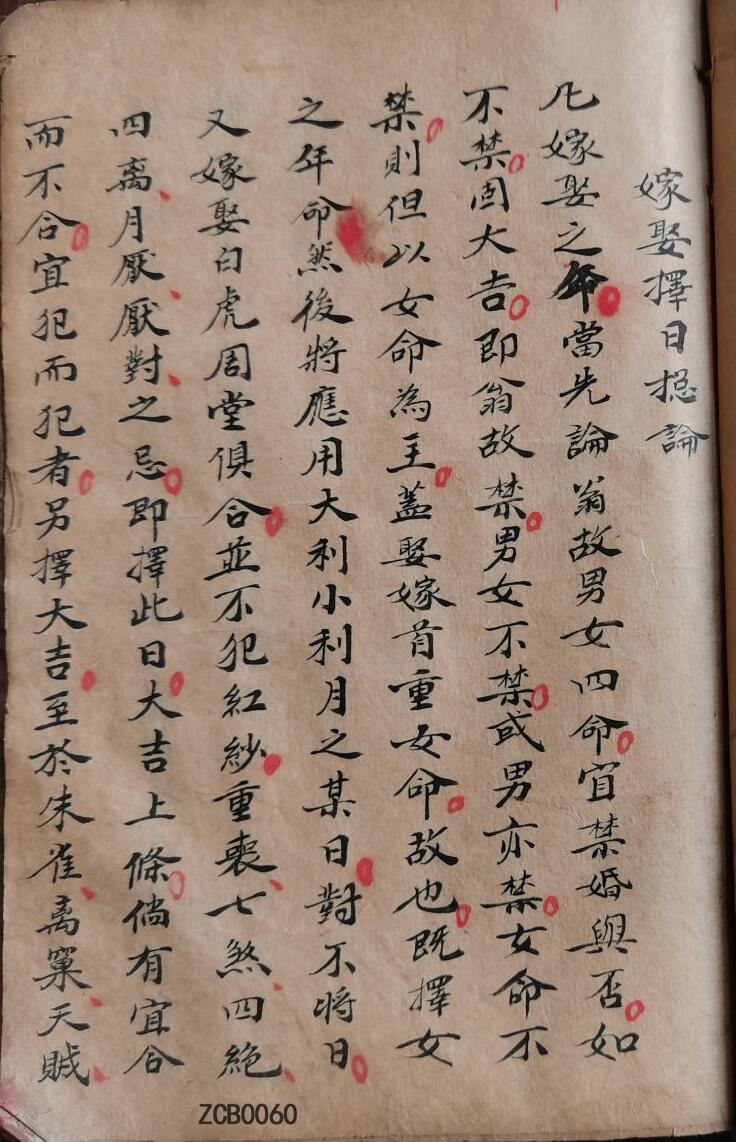 嫁娶擇日捴論
凡嫁娶之年當先論翁故男女四命宜禁婚與否如
不禁固大吉即翁故禁男女不禁或男亦禁女命不
禁則但以女命為主蓋娶嫁首重女命故也既擇女
之年命然後將應用大利小利月之某日對不将日
又嫁娶白虎周堂俱合並不犯紅紗重喪七煞四絕
四离月厭厭對之忌即擇此日大吉上條倘有宜合
而不合宜犯而犯者另擇大吉至於朱雀离窠天賊
ZCB0060